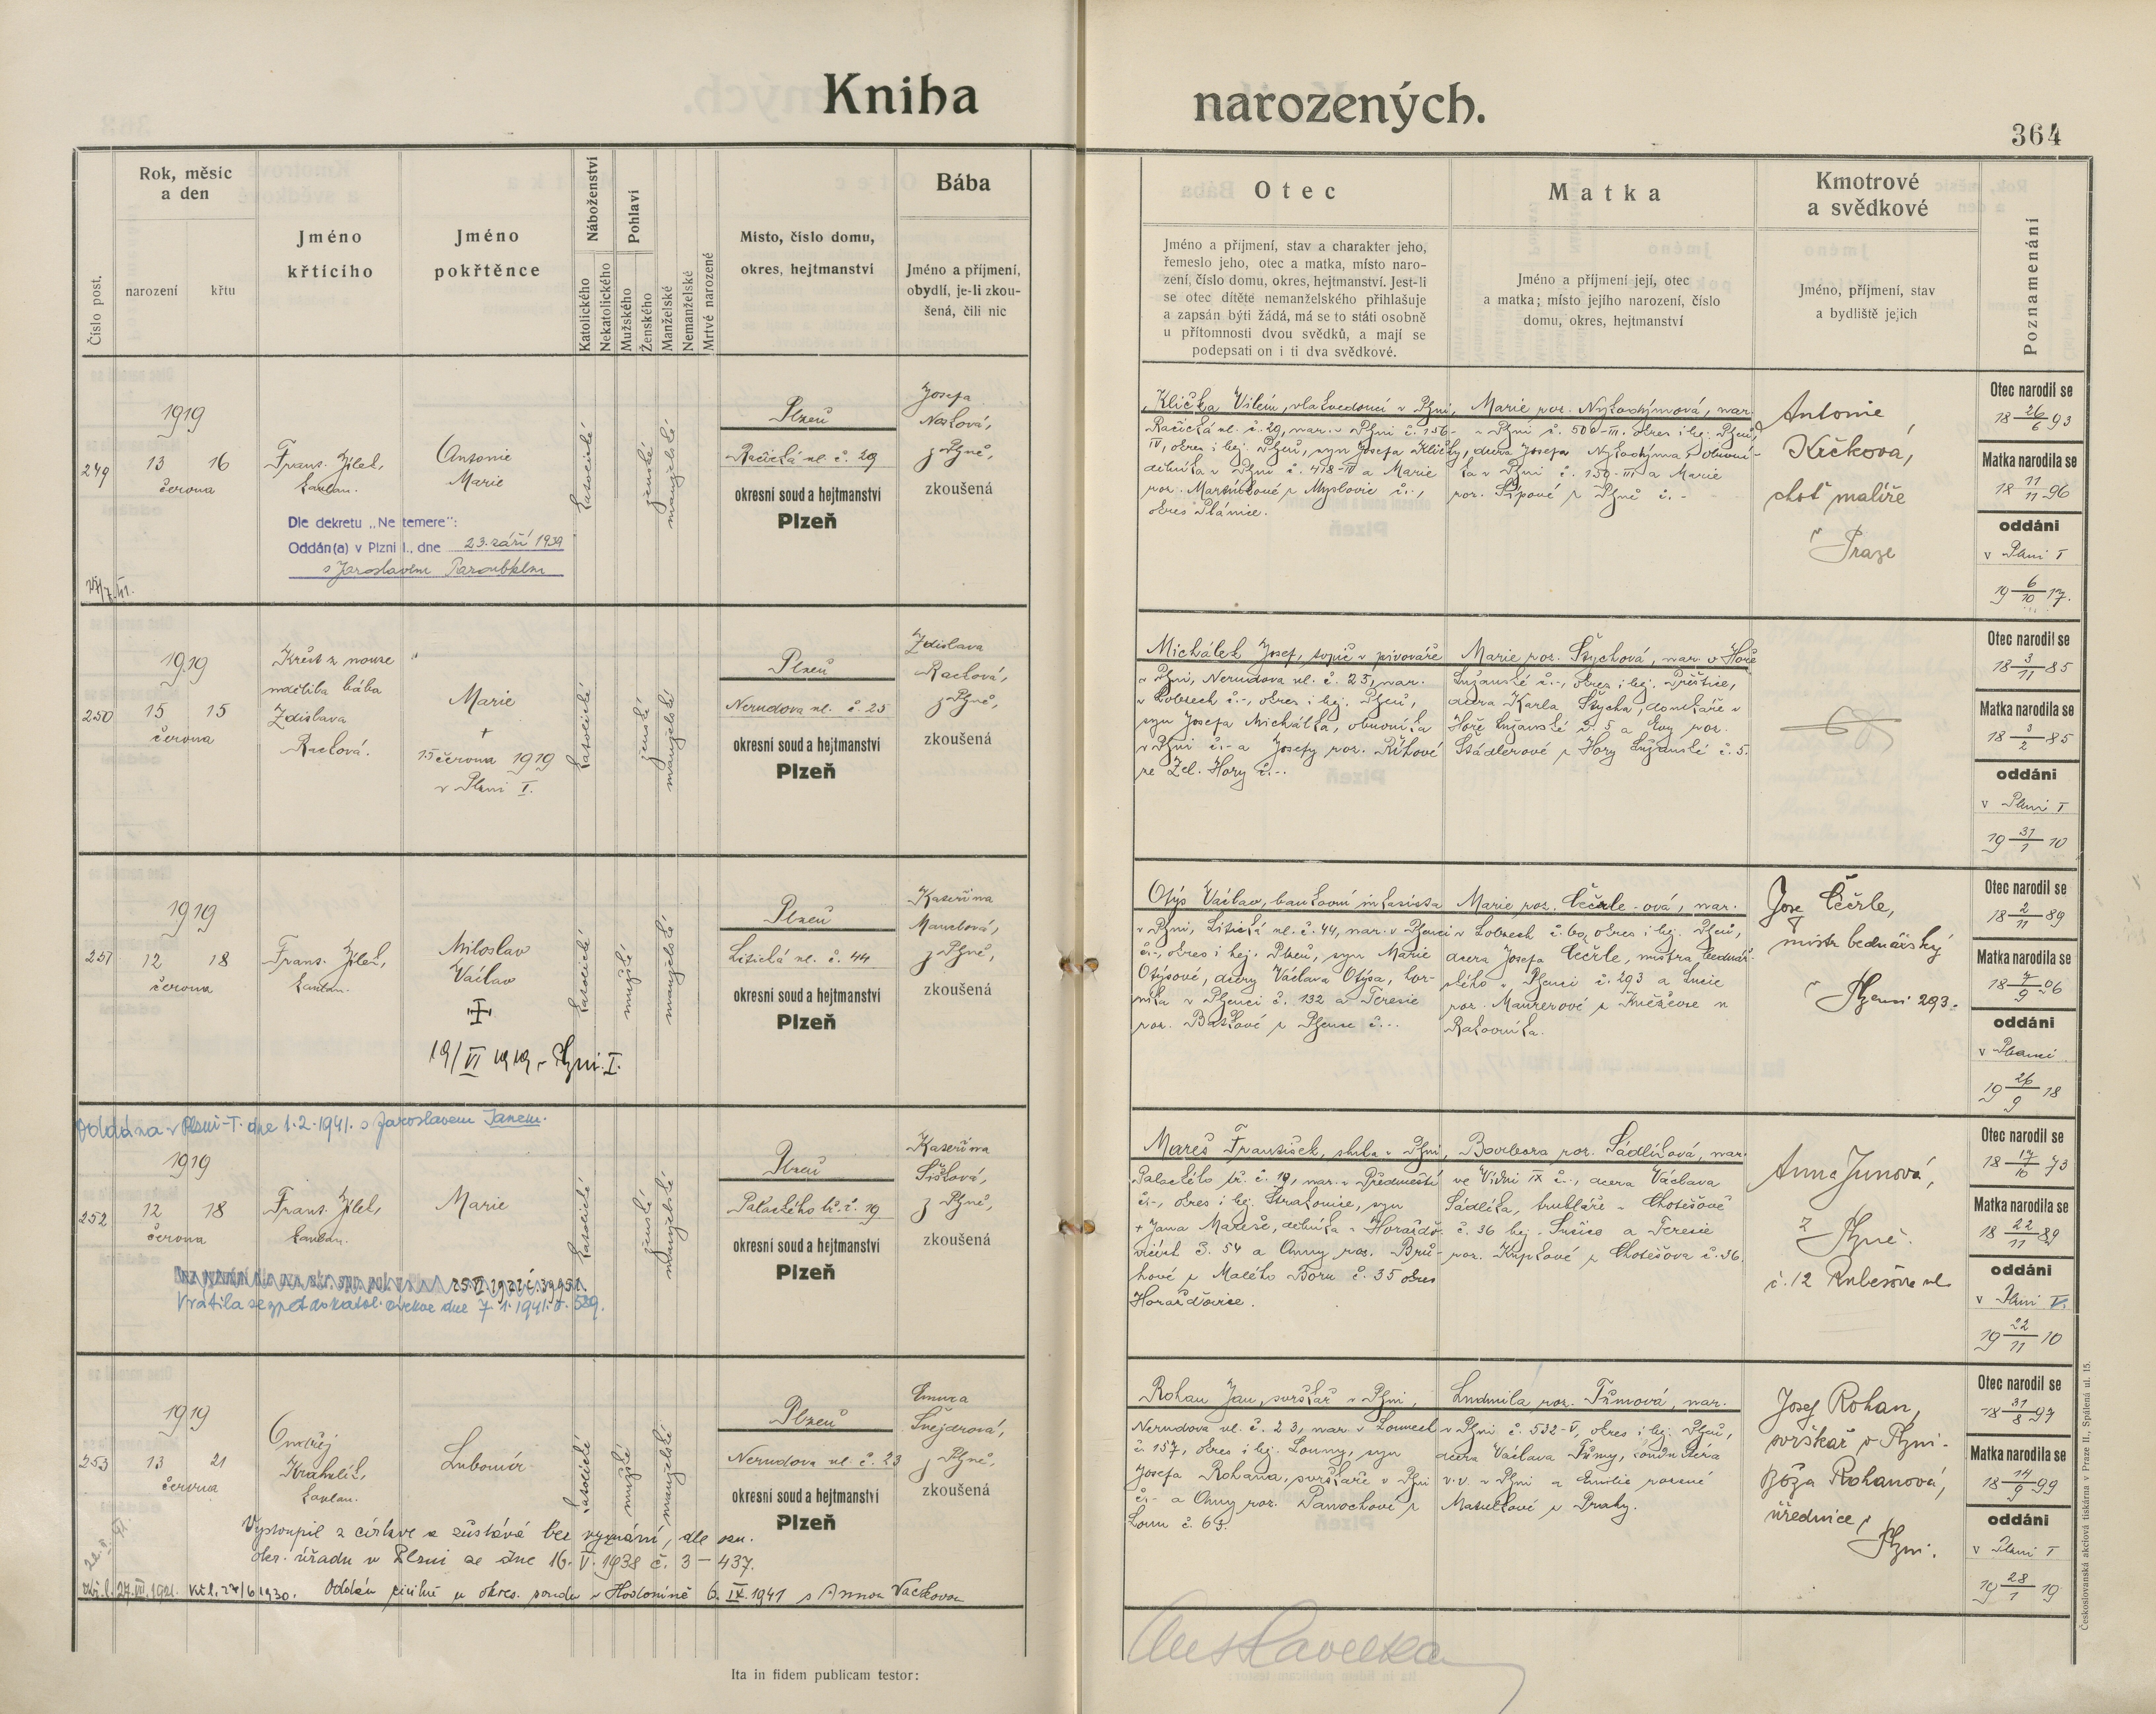 Kniha narozených.
364
Číslo post.
Rok, měsíc
a den
narození
křtu
Jméno
křtícího
Jméno
pokřtěnce
Náboženství
Katolického
Nekatolického
Pohlaví
Mužského
Ženského
Manželské
Nemanželské
Mrtvě narozené
Místo, číslo domu,
okres, hejtmanství
Bába
Jméno a příjmení,
obydlí, je-li zkou-
šená, čili nic
Otec
Jméno a příjmení, stav a charakter jeho,
řemeslo jeho, otec a matka, místo naro-
zení, číslo domu, okres, hejtmanství. Jest-li
se otec dítěte nemanželského přihlašuje
a zapsán býti žádá, má se to státi osobně
u přítomnosti dvou svědků, a mají se
podepsati on i ti dva svědkové.
Matka
Jméno a příjmení její, otec
a matka; místo jejího narození, číslo
domu, okres, hejtmanství
Kmotrové
a svědkové
Jméno, příjmení, stav
a bydliště jejich
Poznamenání
249
1919
13 16
června
Frant. Jílek,
kaplan.
Antonie
Marie
katolické
ženské
manželské
Plzeň
Račická ul. č. 29
okresní soud a hejtmanství
Plzeň
Josefa
Nosková,
z Plzně,
zkoušená
Dle dekretu „Ne temere":
Oddán(a) v Plzni I., dne 23. září 1939
s Jaroslavem Paroubkem
Klička Vilém, vlakvedoucí v Plzni,
Račická ul. č. 29, nar. v Plzni č. 156-
IV, okres i hej. Plzeň, syn Josefa Kličky,
dělníka v Plzni č. 478-IV a Marie
roz. Martínkové z Myslovic č.-,
okres Plánice.
Marie roz. Nykodýmová, nar.
v Plzni č. 500-III. okres i hej. Plzeň,
dcera Josefa Nykodýma, obuvní-
ka v Plzni č. 150-III a Marie
roz. Šípové z Plzně č. -
Antonie
Krčková,
choť malíře
v Praze
Otec narodil se
18 26/6 93
Matka narodila se
18 11/11 96
oddáni
v Plzni I
19 6/10 17.
250
1919
15 15
června
Křest z nouze
udělila bába
Zdislava
Racková.
Marie
+
15 června 1919
v Plzni I.
katolické
ženské
manželské
Plzeň
Nerudova ul. č. 25
okresní soud a hejtmanství
Plzeň
Zdislava
Racková,
z Plzně,
zkoušená
Michálek Josef, topič v pivováře
v Plzni, Nerudova ul. č. 25, nar.
v Lobzech č.-, okres i hej. Plzeň,
syn Josefa Michálka, obuvníka
v Plzni č.- a Josefy roz. Říhové
ze Žel. Hory č.-.
Marie roz. Štychová, nar. v Hoře
Lužanské č.-, okres i hej. Přeštice,
dcera Karla Štycha, domkáře v
Hoře Lužanské č. 5 a Evy roz.
Stádlerové z Hory Lužanské č. 5.
Otec narodil se
18 3/11 85
Matka narodila se
18 3/2 85
oddáni
v Plzni I
19 31/1 10
251
1919
12 18
června
Frant. Jílek,
kaplan.
Miloslav
Václav
19/VI 1919 v Plzni I.
katolické
mužské
manželské
Plzeň
Litická ul. č. 44
okresní soud a hejtmanství
Plzeň
Kateřina
Mandová,
z Plzně,
zkoušená
Otýs Václav, bankovní inkasista
v Plzni, Litická ul. č. 44, nar. v Plzenci
č.-, okres i hej. Plzeň, syn Marie
Otýsové, dcery Václava Otýsa, hor-
níka v Plzenci č. 132 a Terezie
roz. Baškové z Plzence č.-.
Marie roz. Čečrle-ová, nar.
v Lobzech č. 60, okres i hej. Plzeň,
dcera Josefa Čečrle, mistra bednář-
ského v Plzenci č. 293 a Lucie
roz. Maurerové z Kněževse u
Rakovníka.
Josef Čečrle,
mistr bednářský
v Plzenci 293.
Otec narodil se
18 2/11 89
Matka narodila se
18 7/9 96
oddáni
v Plzenci
19 26/9 18
Oddána v Plzni-I. dne 1.2.1941. s Jaroslavem Janem.
252
1919
12 18
června
Frant. Jílek,
kaplan.
Marie
katolické
ženské
manželské
Plzeň
Palackého tř. č. 19
okresní soud a hejtmanství
Plzeň
Kateřina
Šišková,
z Plzně,
zkoušená
Vrátila se zpět do katol. církve dne 7.1.1941. č. 529.
Mareš František, sluha v Plzni,
Palackého tř. č. 19, nar. v Předměstí
č.-, okres i hej. Strakonice, syn
+ Jana Mareše, dělníka v Horažďo-
vicích č. 54 a Anny roz. Brů-
hové z Malého Boru č. 35 okres
Horažďovice.
Barbora roz. Sádlíková, nar.
ve Vídni IX č.-, dcera Václava
Sádlíka, truhláře v Chotěšově
č. 36 hej. Sušice a Terezie
roz. Krpkové z Chotěšova č. 36.
Anna Junová,
z Plzně.
č. 12 Kubešova ul.
Otec narodil se
18 17/10 73
Matka narodila se
18 22/11 89
oddáni
v Plzni V.
19 22/11 10
253
1919
13 21
června
Ondřej
Krahulík,
kaplan.
Lubomír
katolické
mužské
manželské
Plzeň
Nerudova ul. č. 23
okresní soud a hejtmanství
Plzeň
Emma
Šnejdrová,
z Plzně,
zkoušená
Vystoupil z církve a zůstává bez vyznání, dle ozn.
okr. úřadu v Plzni ze dne 16. V. 1938 č. 3 - 437.
27.VII.1921. Kř. l. 27/6 1930. Oddán civilně u okres. soudu v Hodoníně 6. IX. 1941 s Annou Vackovou
Rohan Jan, svrškař v Plzni,
Nerudova ul. č. 23, nar. v Lounech
č. 157, okres i hej. Louny, syn
Josefa Rohana, svrškaře v Plzni
č.- a Anny roz. Panochové z
Loun č. 63.
Ludmila roz. Tůmová, nar.
v Plzni č. 532-V, okres i hej. Plzeň,
dcera Václava Tůmy, konduktéra
v.v. v Plzni a Emilie rozené
Matuškové z Prahy.
Josef Rohan,
svrškař v Plzni.
Böža Rohanová,
úřednice v
Plzni.
Otec narodil se
18 31/8 97
Matka narodila se
18 14/9 99
oddáni
v Plzni I
19 28/1 19
Ita in fidem publicam testor:
Českoslovanská akciová tiskárna v Praze II., Spálená ul. 15.